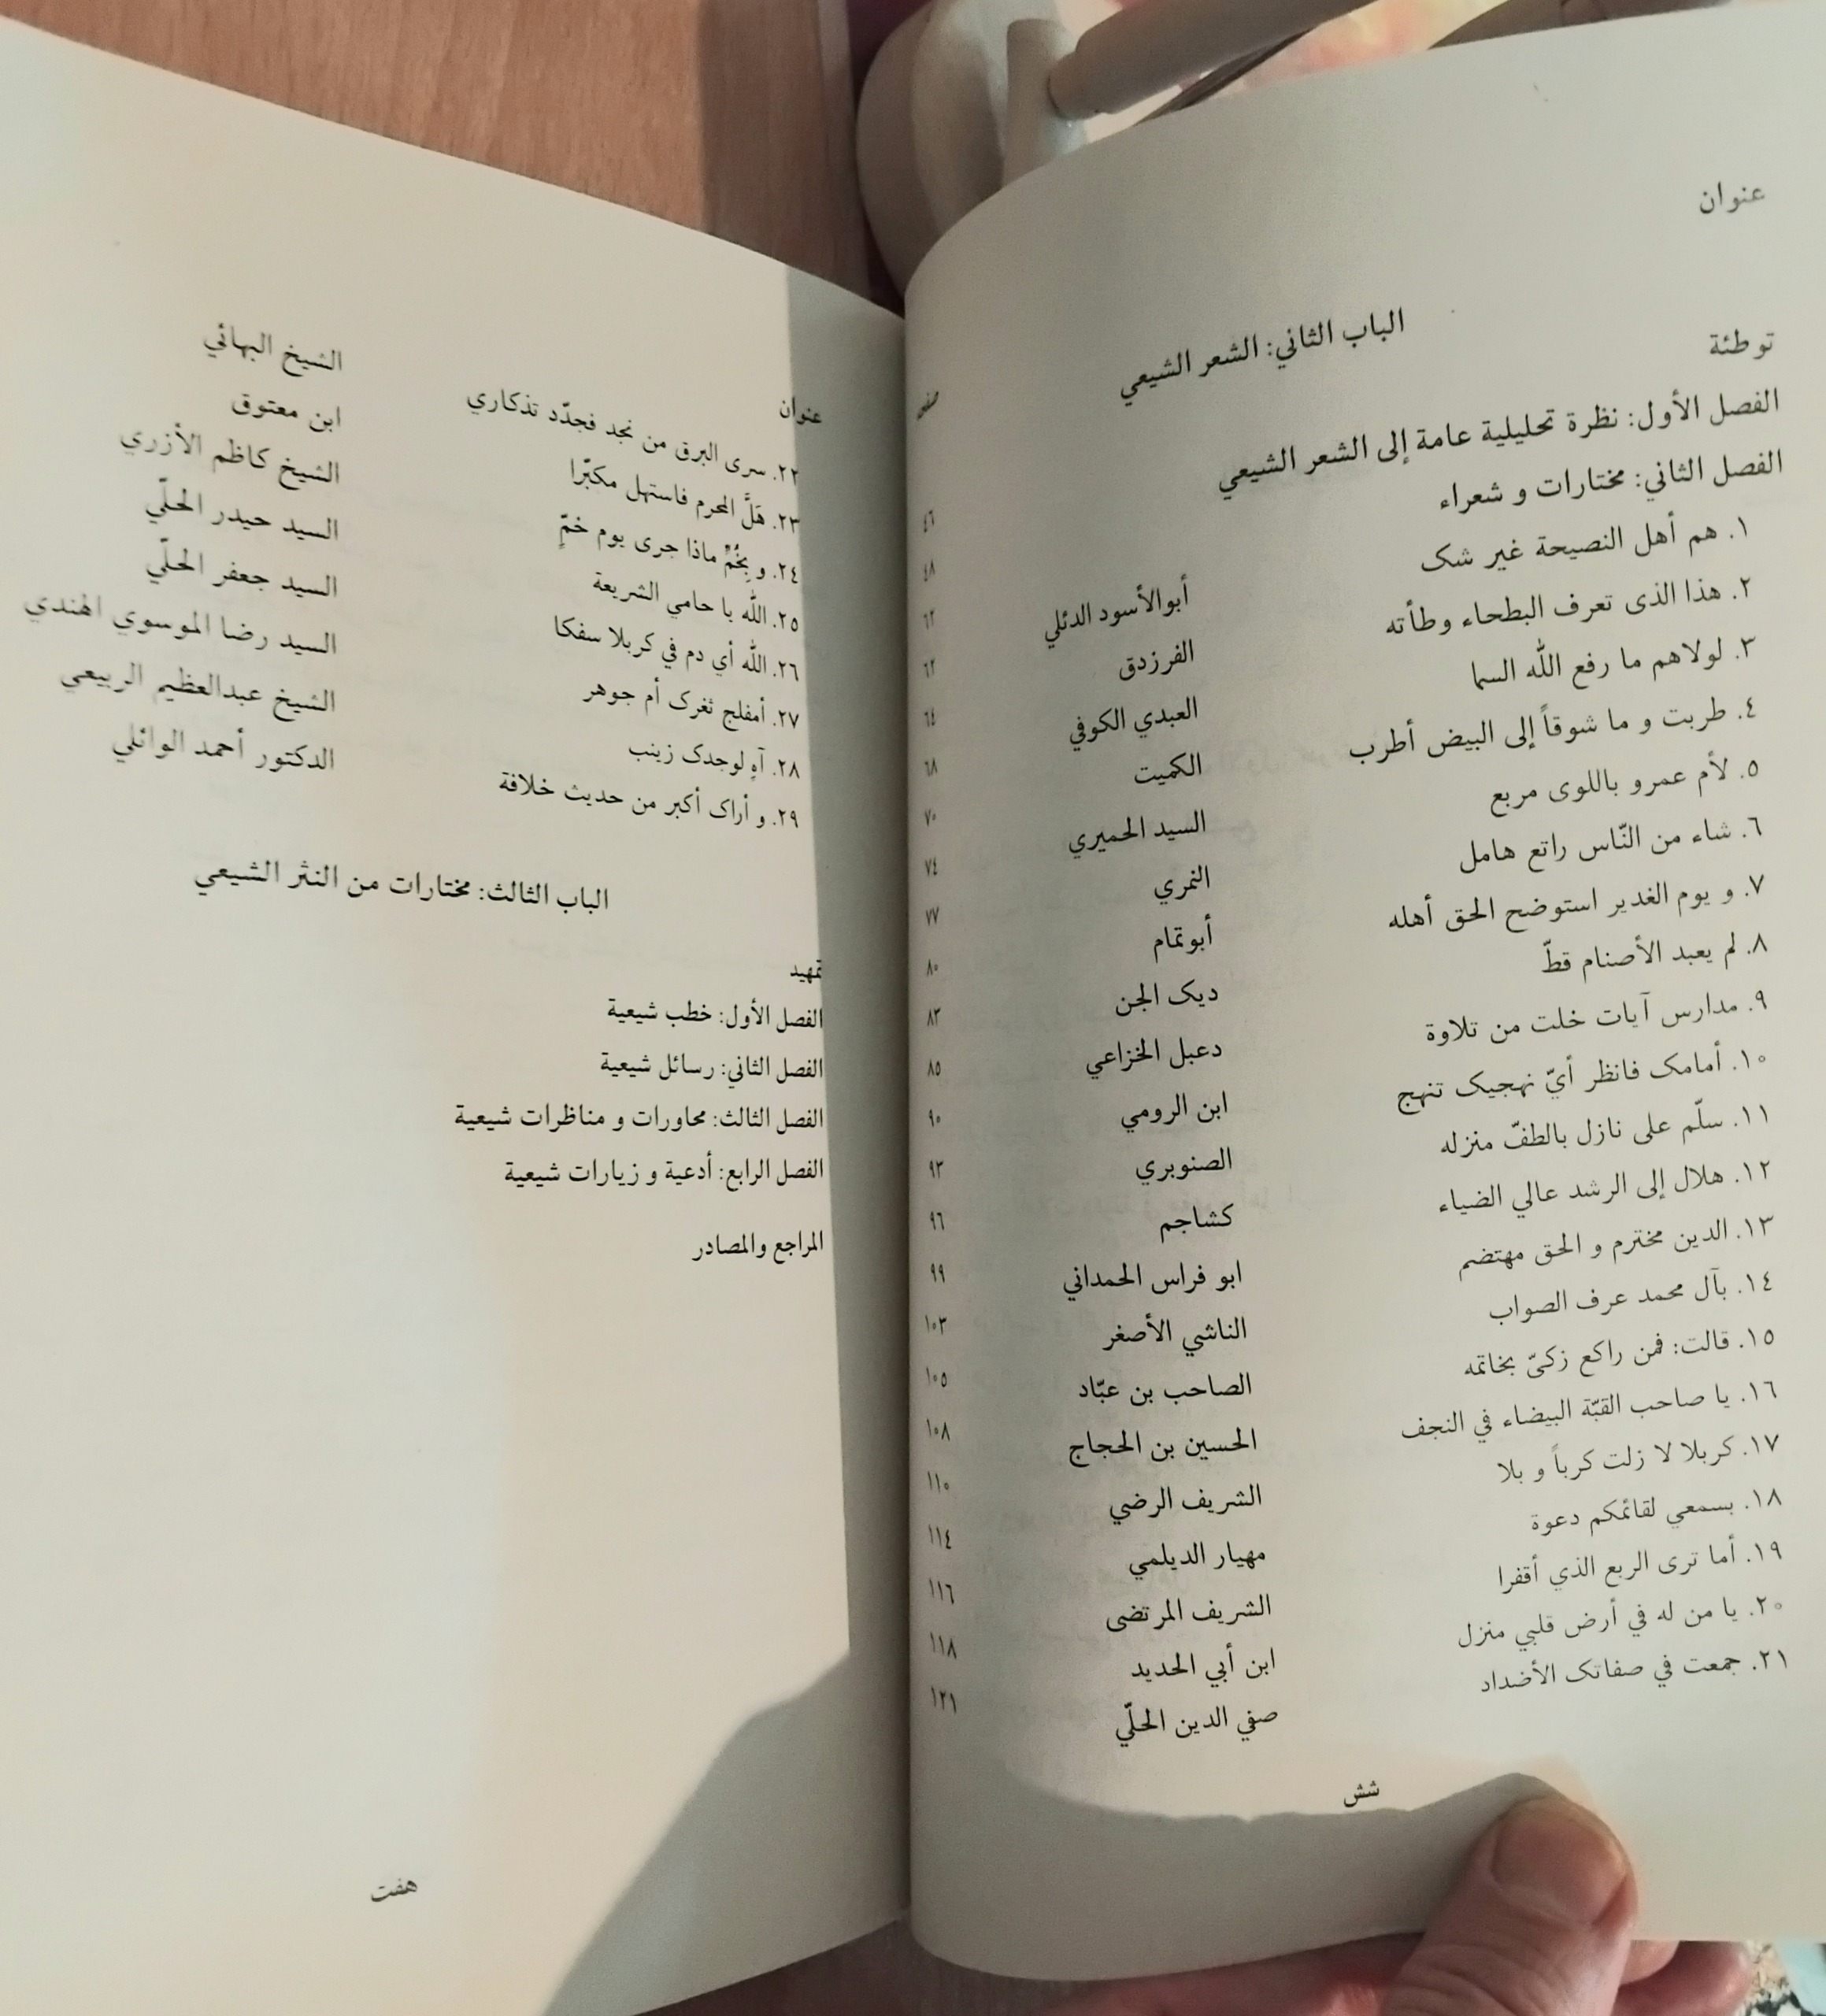 عنوان
صفحه
الباب الثاني: الشعر الشيعي
توطئة ٤٦
الفصل الأول: نظرة تحليلية عامة إلى الشعر الشيعي ٤٨
الفصل الثاني: مختارات و شعراء ٦٢
١. هم أهل النصيحة غير شک أبوالأسود الدئلي ٦٢
٢. هذا الذی تعرف البطحاء وطأته الفرزدق ٦٤
٣. لولاهم ما رفع الله السما العبدي الكوفي ٦٨
٤. طربت و ما شوقاً إلى البيض أطرب الكميت ٧٠
٥. لأم عمرو باللوى مربع السيد الحميري ٧٤
٦. شاء من النّاس راتع هامل النمري ٧٧
٧. و يوم الغدير استوضح الحق أهله أبوتمّام ٨٠
٨. لم يعبد الأصنام قطّ ديک الجن ٨٣
٩. مدارس آيات خلت من تلاوة دعبل الخزاعي ٨٥
١٠. أمامک فانظر أيّ نهجيک تنهج ابن الرومي ٩٠
١١. سلّم على نازل بالطفّ منزله الصنوبري ٩٣
١٢. هلال إلى الرشد عالي الضياء كشاجم ٩٦
١٣. الدين مخترم و الحق مهتضم ابو فراس الحمداني ٩٩
١٤. بآل محمد عرف الصواب الناشي الأصغر ١٠٣
١٥. قالت: فمن راكع زكىّ بخاتمه الصاحب بن عبّاد ١٠٥
١٦. يا صاحب القبّة البيضاء في النجف الحسين بن الحجاج ١٠٨
١٧. كربلا لا زلت كرباً و بلا الشريف الرضي ١١٠
١٨. بسمعي لقائمكم دعوة مهيار الديلمي ١١٤
١٩. أما ترى الربع الذي أقفرا الشريف المرتضى ١١٦
٢٠. يا من له في أرض قلبي منزل ابن أبي الحديد ١١٨
٢١. جمعت في صفاتک الأضداد صفي الدين الحلّي ١٢١
شش
عنوان
٢٢. سرى البرق من نجد فجدّد تذكاري الشيخ البهائي
٢٣. هَلَّ المحرم فاستهل مكبّرا ابن معتوق
٢٤. و بِخُمٍّ ماذا جرى يوم خمّ الشيخ كاظم الأزري
٢٥. الله يا حامي الشريعة السيد حيدر الحلّي
٢٦. الله أي دم في كربلا سفكا السيد جعفر الحلّي
٢٧. أمفلج ثغرک أم جوهر السيد رضا الموسوي الهندي
٢٨. آهِ لوجدک زينب الشيخ عبدالعظيم الربيعي
٢٩. و أراک أكبر من حديث خلافة الدكتور أحمد الوائلي
الباب الثالث: مختارات من النثر الشيعي
تمهيد
الفصل الأول: خطب شيعية
الفصل الثاني: رسائل شيعية
الفصل الثالث: محاورات و مناظرات شيعية
الفصل الرابع: أدعية و زيارات شيعية
المراجع والمصادر
هفت